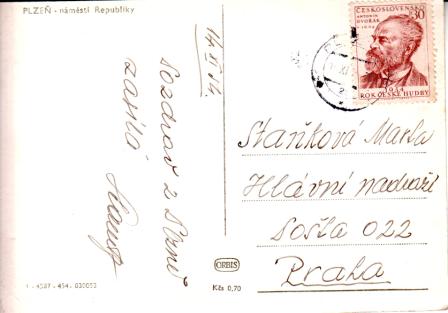 PLZEŇ - náměstí Republiky
14.XI.54.
Pozdrav z Plzně
zasílá
1 - 4587 - 454 - 030053
ORBIS
Kčs 0,70
ČESKOSLOVENSKO
ANTONÍN
DVOŘÁK
30
1954
ROK ČESKÉ HUDBY
Staňková Marta
Hlavní nádraží
Pošta 022
Praha